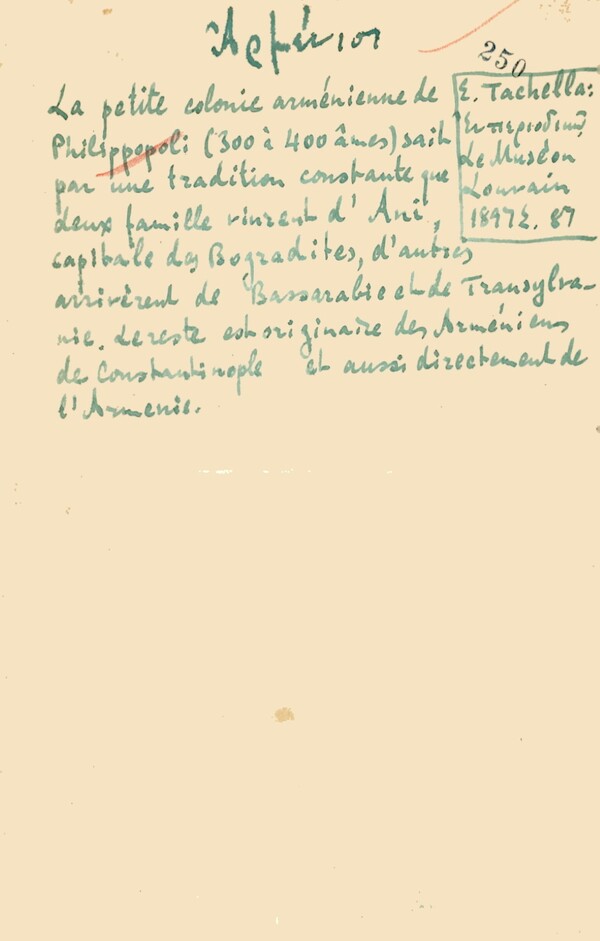 Ἀρμένιοι
250
La petite colonie arménienne de
Philippopoli (300 à 400 âmes) sait
par une tradition constante que
deux famille vinrent d'Ani,
capitale des Bogradites, d'autres
arrivèrent de Bassarabie et de Transylva-
nie. Le reste est originaire des Arméniens
de Constantinople et aussi directement de
l'Armenie.
E. Tachella:
Ἐν περιοδικῷ
Le Muséon
Louvain
1897 Σ. 87